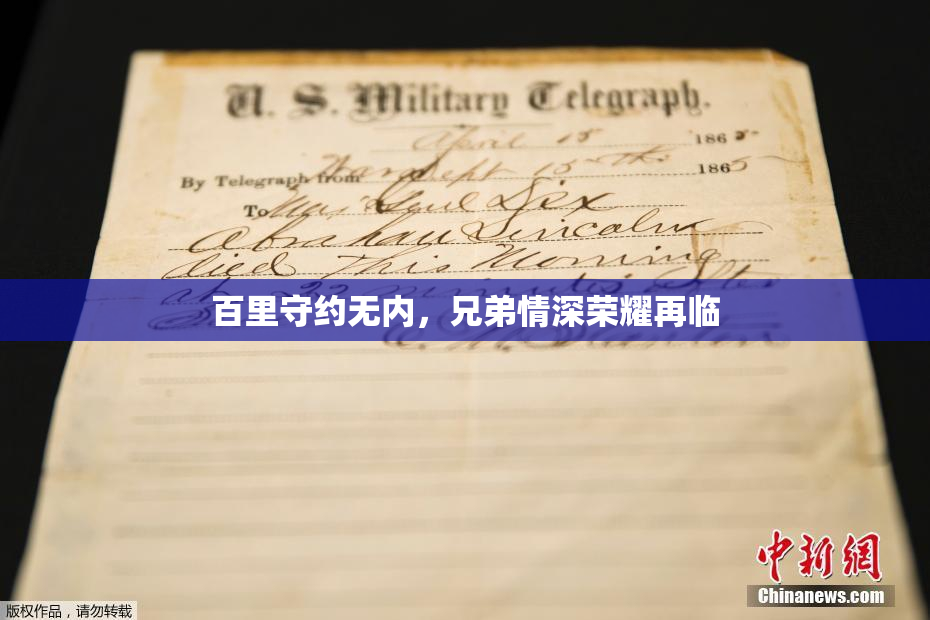 U. S. Military Telegraph.
April 15 1865
By Telegraph from War Dept 15th 1865
To Maj Genl Dix
Abraham Lincoln
died This Morning
at 22 minutes after
百里守约无内，兄弟情深荣耀再临
E. M. Stanton
中新網
Chinanews.com
版权作品，请勿转载